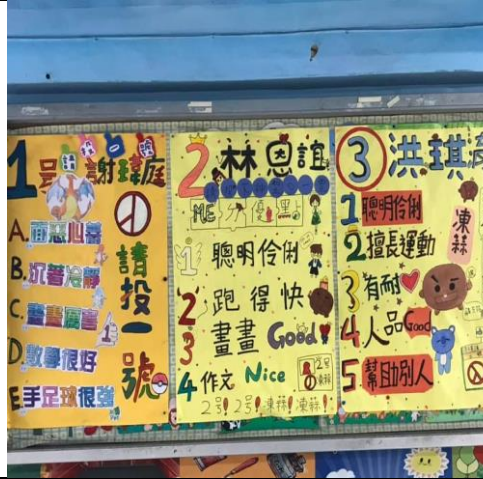 1号 謝瑋庭
A.面惡心善
B.沉著冷靜
C.畫畫厲害
D.數學很好
E.手足球很強
請投一號
2 林恩誼
ME 分優
1 聰明伶俐
2 跑得快
3 畫畫 Good!
4 作文 Nice
2号! 2号! 凍蒜! 凍蒜!
3 洪琪
1 聰明伶俐
2 擅長運動
3 有耐
4 人品Good
5 幫助別人
凍蒜